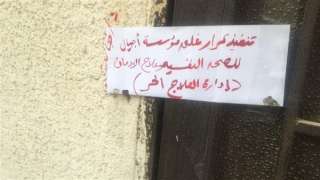 تنفيذ قرار على مؤسسة أجيال
للصحه النفسيه وعلاج الادمان
(إدارة العلاج الحر)